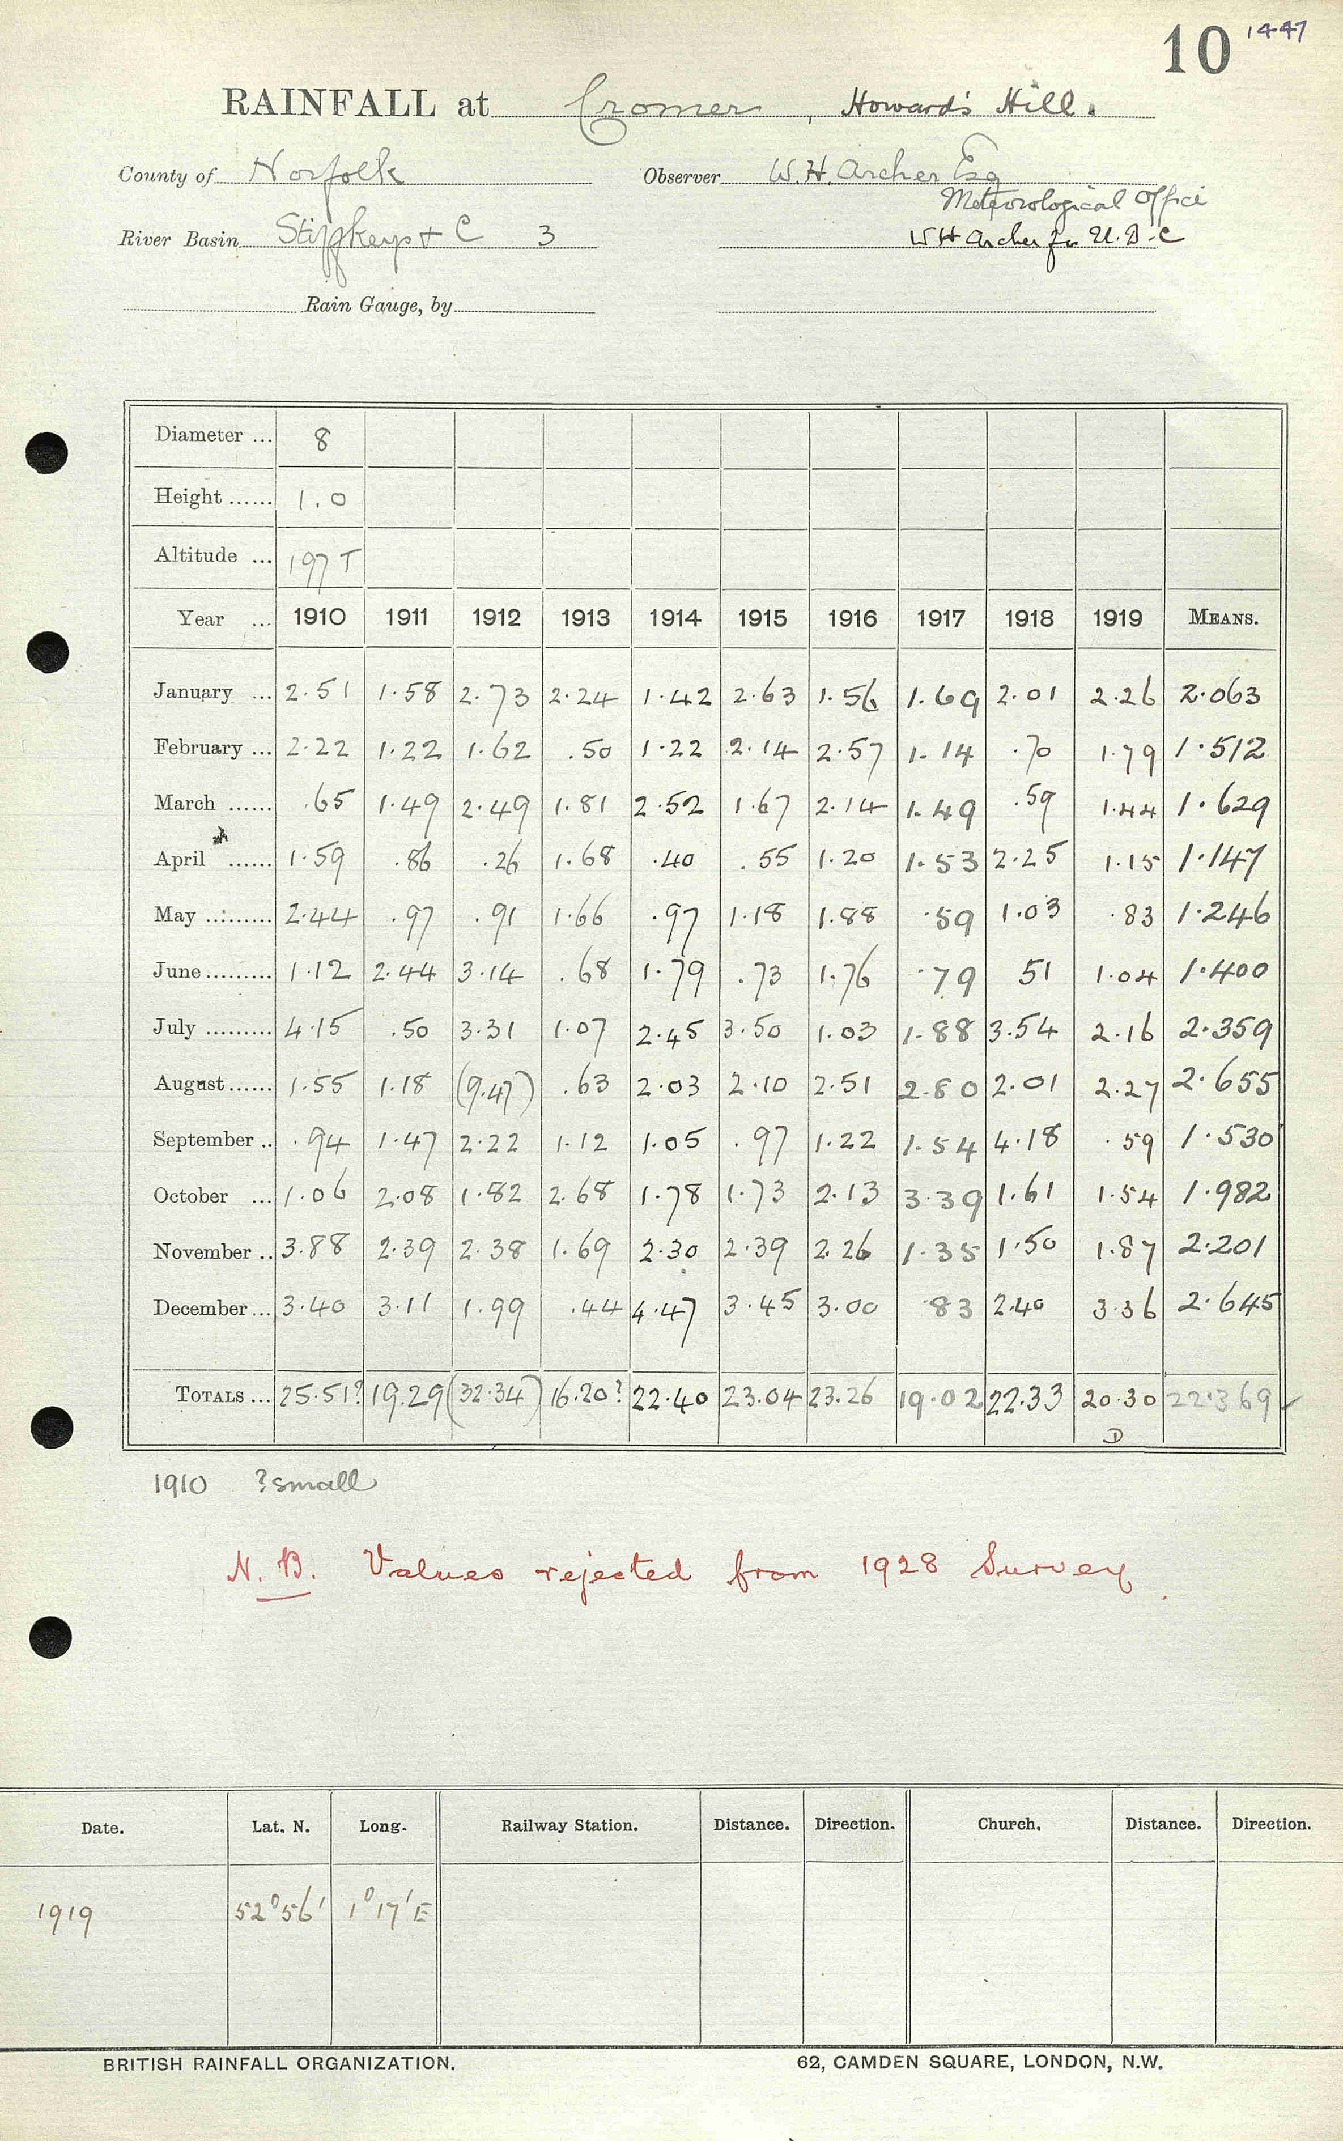 10 1447
RAINFALL at Cromer, Howard's Hill.
County of Norfolk Observer W. H. Archer Esq
Meteorological Office
River Basin Stiffkey + C 3 W H Archer for U.D.C
Rain Gauge, by
Diameter ... 8
Height ...... 1.0
Altitude ... 197 T
Year ... 1910 1911 1912 1913 1914 1915 1916 1917 1918 1919 MEANS.
January ... 2.51 1.58 2.73 2.24 1.42 2.63 1.56 1.69 2.01 2.26 2.063
February ... 2.22 1.22 1.62 .50 1.22 2.14 2.57 1.14 .70 1.79 1.512
March ...... .65 1.49 2.49 1.81 2.52 1.67 2.14 1.49 .59 1.44 1.629
April ...... 1.59 .86 .26 1.68 .40 .55 1.20 1.53 2.25 1.15 1.147
May ......... 2.44 .97 .91 1.66 .97 1.18 1.88 .59 1.03 .83 1.246
June ......... 1.12 2.44 3.14 .68 1.79 .73 1.76 .79 51 1.04 1.400
July ......... 4.15 .50 3.31 1.07 2.45 3.50 1.03 1.88 3.54 2.16 2.359
August ...... 1.55 1.18 (9.47) .63 2.03 2.10 2.51 2.80 2.01 2.27 2.655
September .. .94 1.47 2.22 1.12 1.05 .97 1.22 1.54 4.18 .59 1.530
October ... 1.06 2.08 1.82 2.68 1.78 1.73 2.13 3.39 1.61 1.54 1.982
November .. 3.88 2.39 2.38 1.69 2.30 2.39 2.26 1.35 1.50 1.87 2.201
December ... 3.40 3.11 1.99 .44 4.47 3.45 3.00 .83 2.40 3.36 2.645
TOTALS ... 25.51? 19.29 (32.34) 16.20? 22.40 23.04 23.26 19.02 22.33 20.30 22.369
D
1910 ? small
N.B. Values rejected from 1928 Survey.
Date. Lat. N. Long. Railway Station. Distance. Direction. Church. Distance. Direction.
1919 52°56' 1°17'E
BRITISH RAINFALL ORGANIZATION. 62, CAMDEN SQUARE, LONDON, N.W.